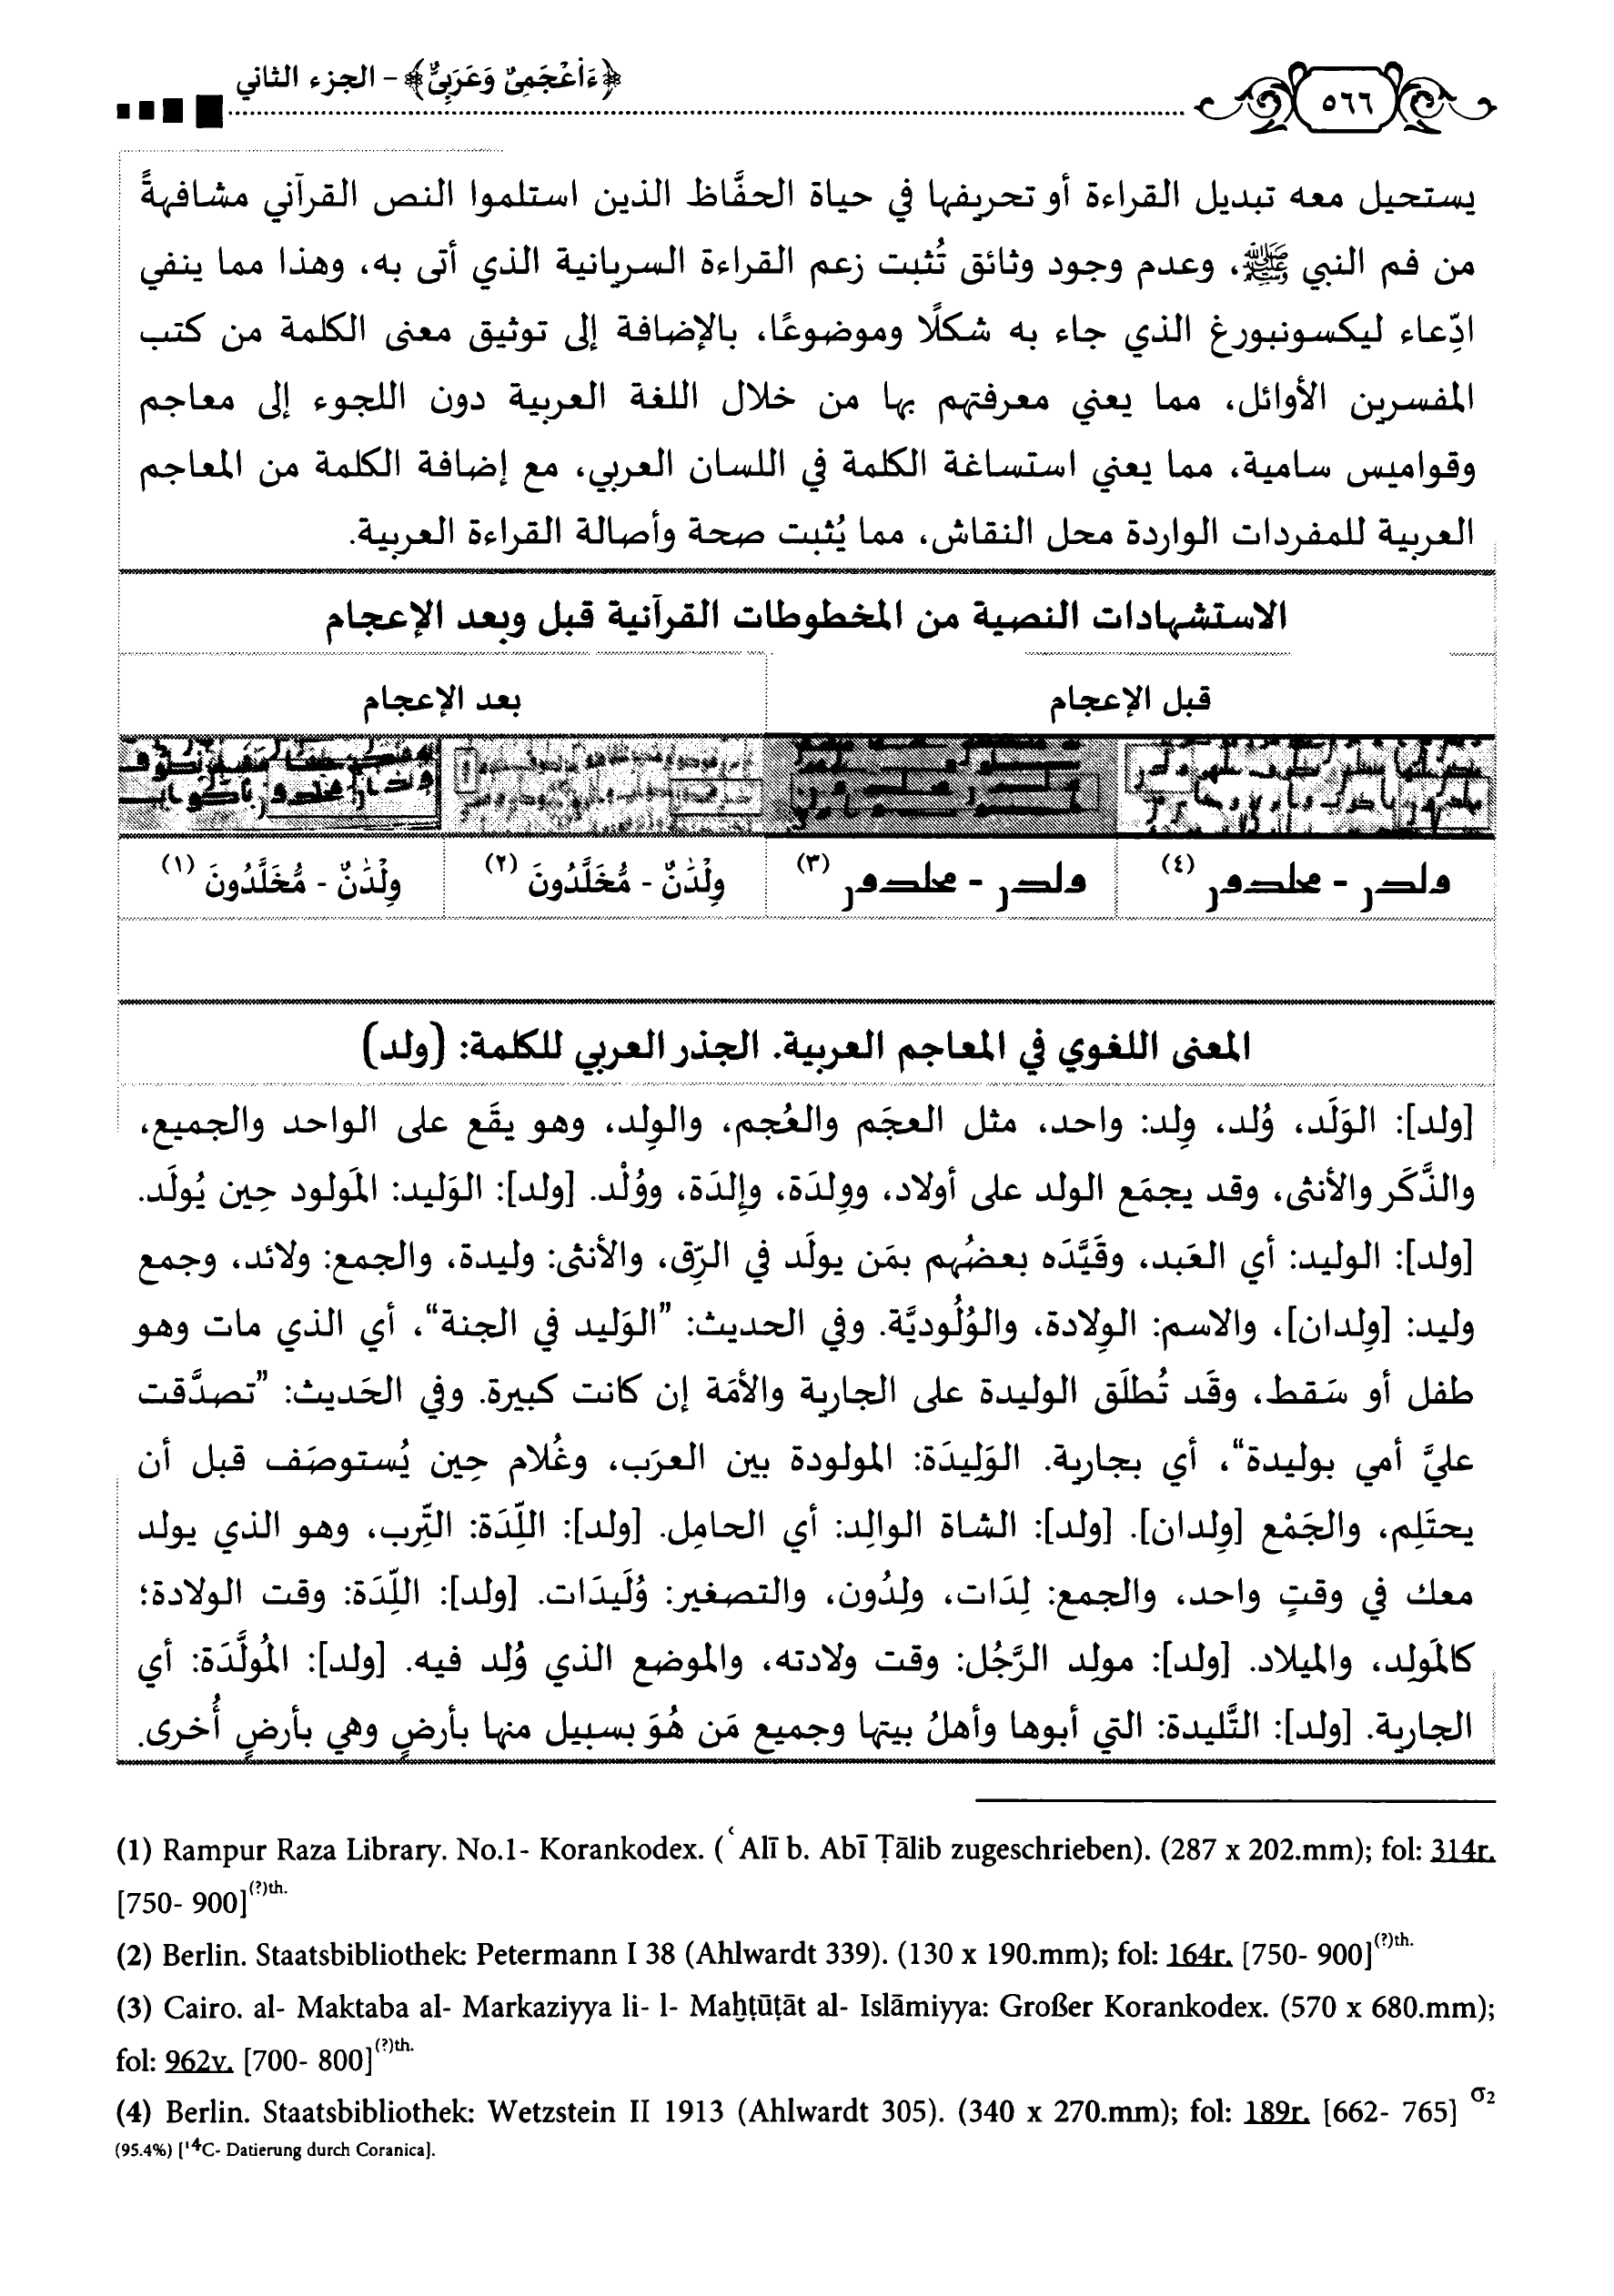 ٥٦٦
﴿ءَاعْجَمِىٌّ وَعَرَبِىٌّ﴾ - الجزء الثاني
يستحيل معه تبديل القراءة أو تحريفها في حياة الحفَّاظ الذين استلموا النص القرآني مشافهةً
من فم النبي ﷺ، وعدم وجود وثائق تُثبت زعم القراءة السريانية الذي أتى به، وهذا مما ينفي
ادِّعاء ليكسونبورغ الذي جاء به شكلًا وموضوعًا، بالإضافة إلى توثيق معنى الكلمة من كتب
المفسرين الأوائل، مما يعني معرفتهم بها من خلال اللغة العربية دون اللجوء إلى معاجم
وقواميس سامية، مما يعني استساغة الكلمة في اللسان العربي، مع إضافة الكلمة من المعاجم
العربية للمفردات الواردة محل النقاش، مما يُثبت صحة وأصالة القراءة العربية.
الاستشهادات النصية من المخطوطات القرآنية قبل وبعد الإعجام
قبل الإعجام
بعد الإعجام
(٤)
(٣)
وِلْدَٰنٌ - مُّخَلَّدُونَ (٢)
وِلْدَٰنٌ - مُّخَلَّدُونَ (١)
المعنى اللغوي في المعاجم العربية. الجذر العربي للكلمة: (ولد)
[ولد]: الوَلَد، وُلد، وِلد: واحد، مثل العجَم والعُجم، والوِلد، وهو يقَع على الواحد والجميع،
والذَّكَر والأنثى، وقد يجمَع الولد على أولاد، وولِدَة، وإِلدَة، ووُلْد. [ولد]: الوَليد: المَولود حِين يُولَد.
[ولد]: الوليد: أي العَبد، وقَيَّدَه بعضُهم بمَن يولَد في الرِّق، والأنثى: وليدة، والجمع: ولائد، وجمع
وليد: [وِلدان]، والاسم: الوِلادة، والوُلُوديَّة. وفي الحديث: ”الوَليد في الجنة“، أي الذي مات وهو
طفل أو سَقط، وقَد تُطلَق الوليدة على الجارية والأمَة إن كانت كبيرة. وفي الحَديث: ”تصدَّقت
عليَّ أمي بوليدة“، أي بجارية. الوَلِيدَة: المولودة بين العرَب، وغُلام حِين يُستوصَف قبل أن
يحتَلِم، والجَمْع [وِلدان]. [ولد]: الشاة الوالِد: أي الحامِل. [ولد]: اللِّدَة: التِّرب، وهو الذي يولد
معك في وقتٍ واحد، والجمع: لِدَات، ولِدُون، والتصغير: وُلَيدَات. [ولد]: اللِّدَة: وقت الولادة؛
كالمَولِد، والميلاد. [ولد]: مولِد الرَّجُل: وقت ولادته، والموضع الذي وُلِد فيه. [ولد]: المُولَّدَة: أي
الجارية. [ولد]: التَّليدة: التي أبوها وأهلُ بيتها وجميع مَن هُوَ بسبيل منها بأرضٍ وهي بأرضٍ أُخرى.
(1) Rampur Raza Library. No.1- Korankodex. (ʿAlī b. Abī Ṭālib zugeschrieben). (287 x 202.mm); fol: 314r.
[750- 900](?)th.
(2) Berlin. Staatsbibliothek: Petermann I 38 (Ahlwardt 339). (130 x 190.mm); fol: 164r. [750- 900](?)th.
(3) Cairo. al- Maktaba al- Markaziyya li- l- Maḫṭūṭāt al- Islāmiyya: Großer Korankodex. (570 x 680.mm);
fol: 962v. [700- 800](?)th.
(4) Berlin. Staatsbibliothek: Wetzstein II 1913 (Ahlwardt 305). (340 x 270.mm); fol: 189r. [662- 765] σ2
(95.4%) [14C- Datierung durch Coranica].